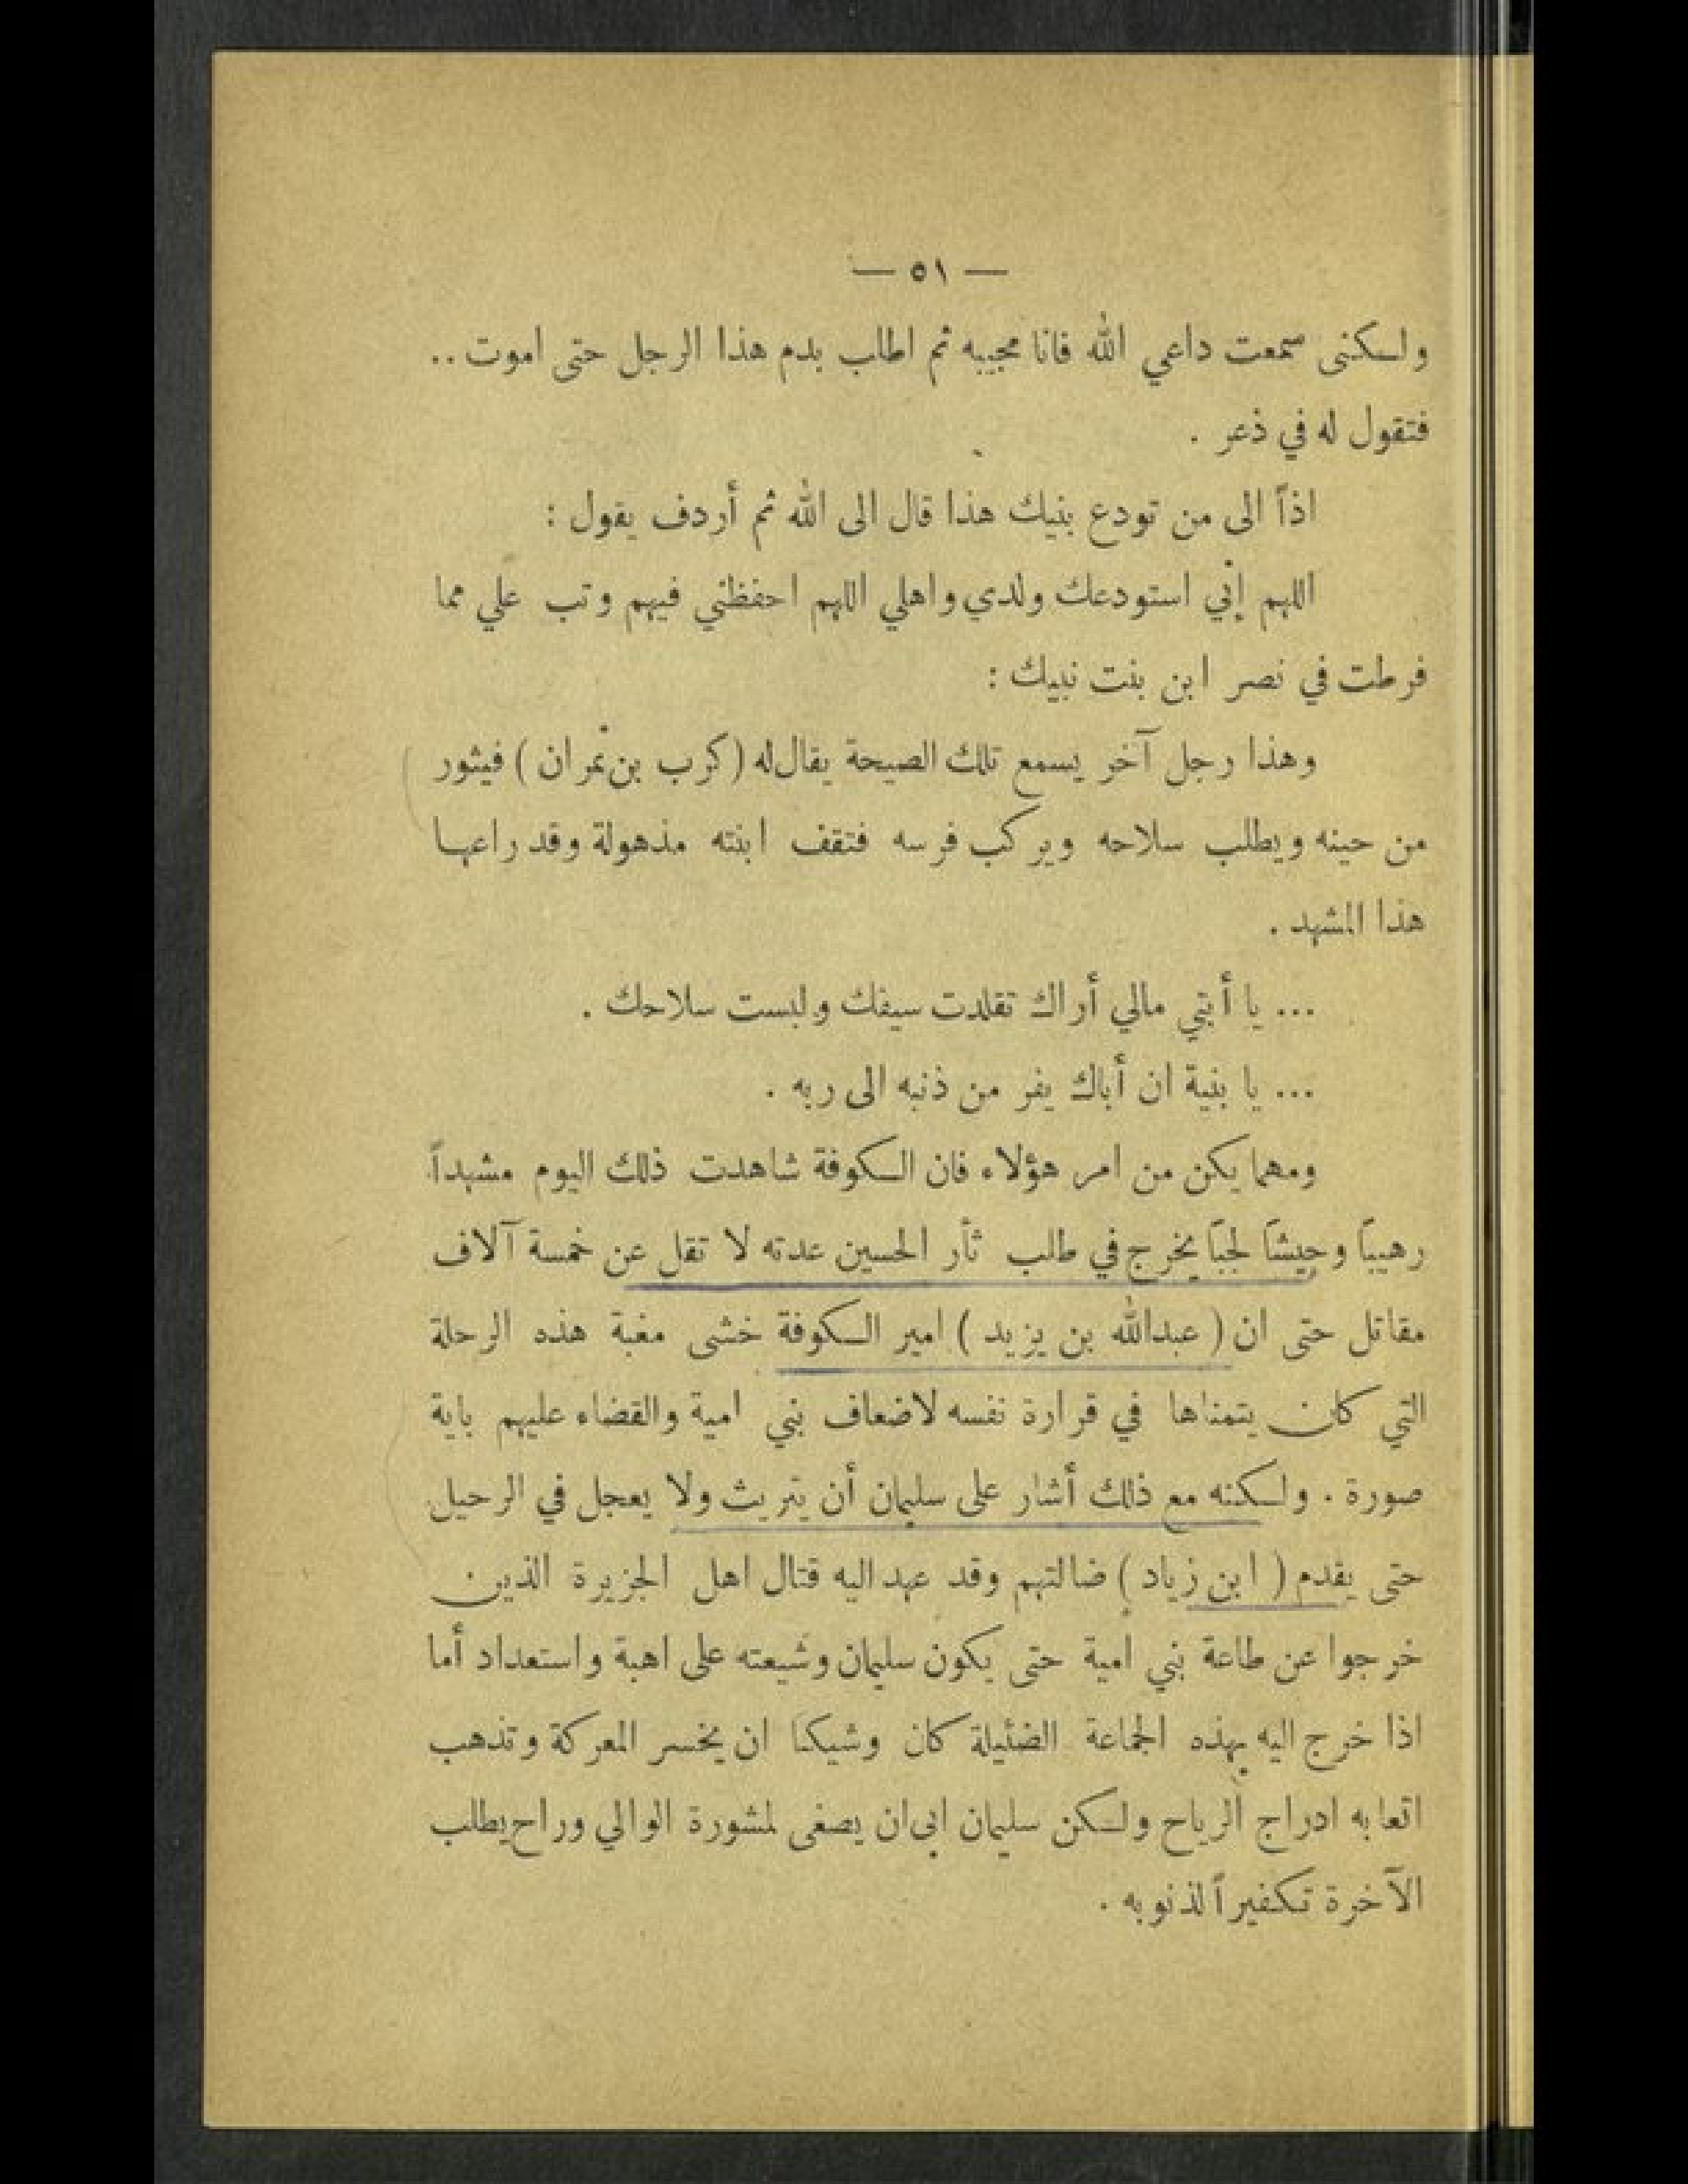 — ٥١ —
ولكنى سمعت داعي الله فانا مجيبه ثم اطالب بدم هذا الرجل حتى اموت ..
فتقول له في ذعر .
اذاً الى من تودع بنيك هذا قال الى الله ثم أردف يقول :
اللهم إني استودعك ولدي واهلي اللهم احفظني فيهم وتب علي مما
فرطت في نصر ابن بنت نبيك :
وهذا رجل آخر يسمع تلك الصيحة يقال له ( كرب بن نمران ) فيثور
من حينه ويطلب سلاحه ويركب فرسه فتقف ابنته مذهولة وقد راعها
هذا المشهد .
... يا أبتي مالي أراك تقلدت سيفك ولبست سلاحك .
... يا بنية ان أباك يفر من ذنبه الى ربه .
ومهما يكن من امر هؤلاء فان الكوفة شاهدت ذلك اليوم مشهداً
رهيباً وجيشاً لجباً يخرج في طلب ثأر الحسين عدته لا تقل عن خمسة آلاف
مقاتل حتى ان ( عبدالله بن يزيد ) امير الكوفة خشى مغبة هذه الرحلة
التي كان يتمناها في قرارة نفسه لاضعاف بني امية والقضاء عليهم باية
صورة . ولكنه مع ذلك أشار على سليمان أن يتريث ولا يعجل في الرحيل
حتى يقدم ( ابن زياد ) ضالتهم وقد عهد اليه قتال اهل الجزيرة الذين
خرجوا عن طاعة بني امية حتى يكون سليمان وشيعته على اهبة واستعداد أما
اذا خرج اليه بهذه الجماعة الضئيلة كان وشيكا ان يخسر المعركة وتذهب
اتعابه ادراج الرياح ولكن سليمان ابى ان يصغى لمشورة الوالي وراح يطلب
الآخرة تكفيراً لذنوبه .